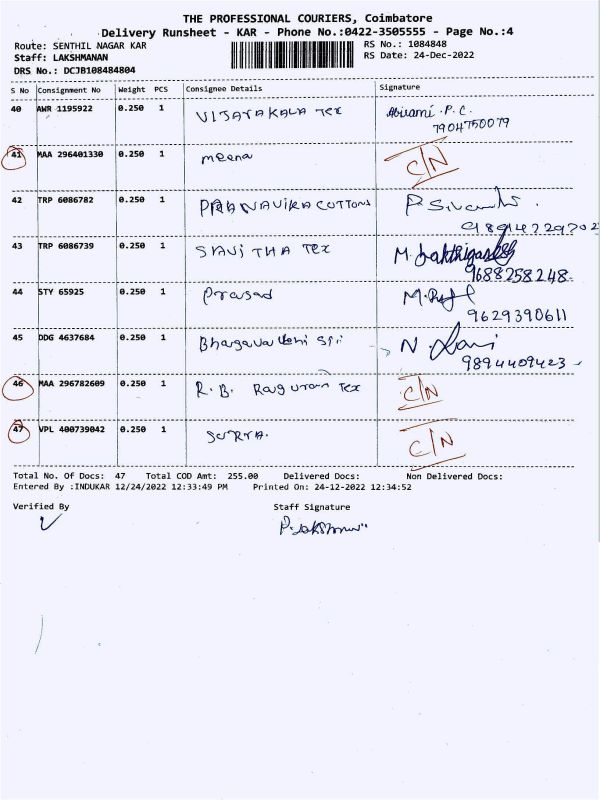 THE PROFESSIONAL COURIERS, Coimbatore
Delivery Runsheet - KAR - Phone No.:0422-3505555 - Page No.:4
Route: SENTHIL NAGAR KAR RS No.: 1084848
Staff: LAKSHMANAN RS Date: 24-Dec-2022
DRS No.: DCJB108484804
S No Consignment No Weight PCS Consignee Details Signature
40 AWR 1195922 0.250 1 VIJAYAKALA Tex Abirami P.C.
7904750079
41 MAA 296401330 0.250 1 meena C/N
42 TRP 6086782 0.250 1 PRANAVIKA COTTONS
43 TRP 6086739 0.250 1 SAVITHA Tex
9688258248
44 STY 65925 0.250 1 Prasad
9629390611
45 DDG 4637684 0.250 1 N. Rani
9894409423
46 MAA 296782609 0.250 1 R. B. Raguram Tex C/N
47 VPL 400739042 0.250 1 SURYA. C/N
Total No. Of Docs: 47 Total COD Amt: 255.00 Delivered Docs: Non Delivered Docs:
Entered By :INDUKAR 12/24/2022 12:33:49 PM Printed On: 24-12-2022 12:34:52
Verified By Staff Signature